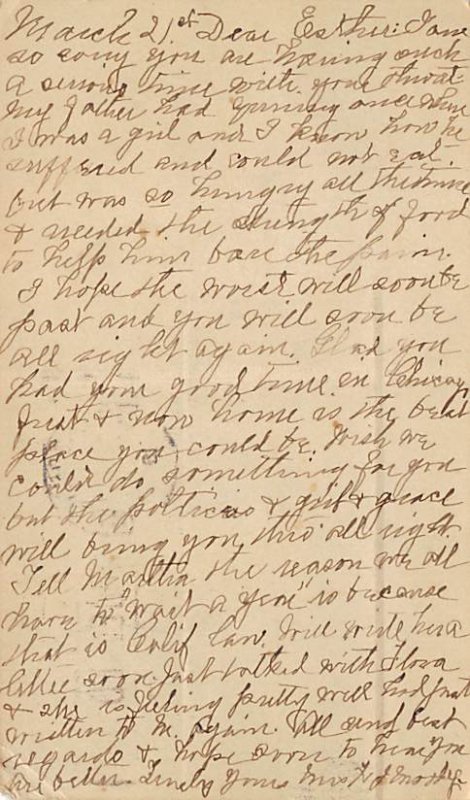 March 21st Dear Esther: I am
so sorry you are having such
a serious time with your throat
My father had Quinsy once when
I was a girl and I know how he
suffered and could not eat.
but was so hungry all the time
& needed the strength of food
to help him bare the pain.
I hope the worst will soon be
past and you will soon be
all right again. Glad you
had your good time in Chicago
first & now home is the best
place you could be. Wish we
could do something for you
but the & grit & grace
will bring you thro all right.
Tell Martha the reason we all
have to "wait a year" is because
that is Calif law. Will write her a
letter soon. Just talked with Flora
& she is feeling pretty well had just
written to M. again. All send best
regards & hope soon to hear you
are better. Yours Mrs